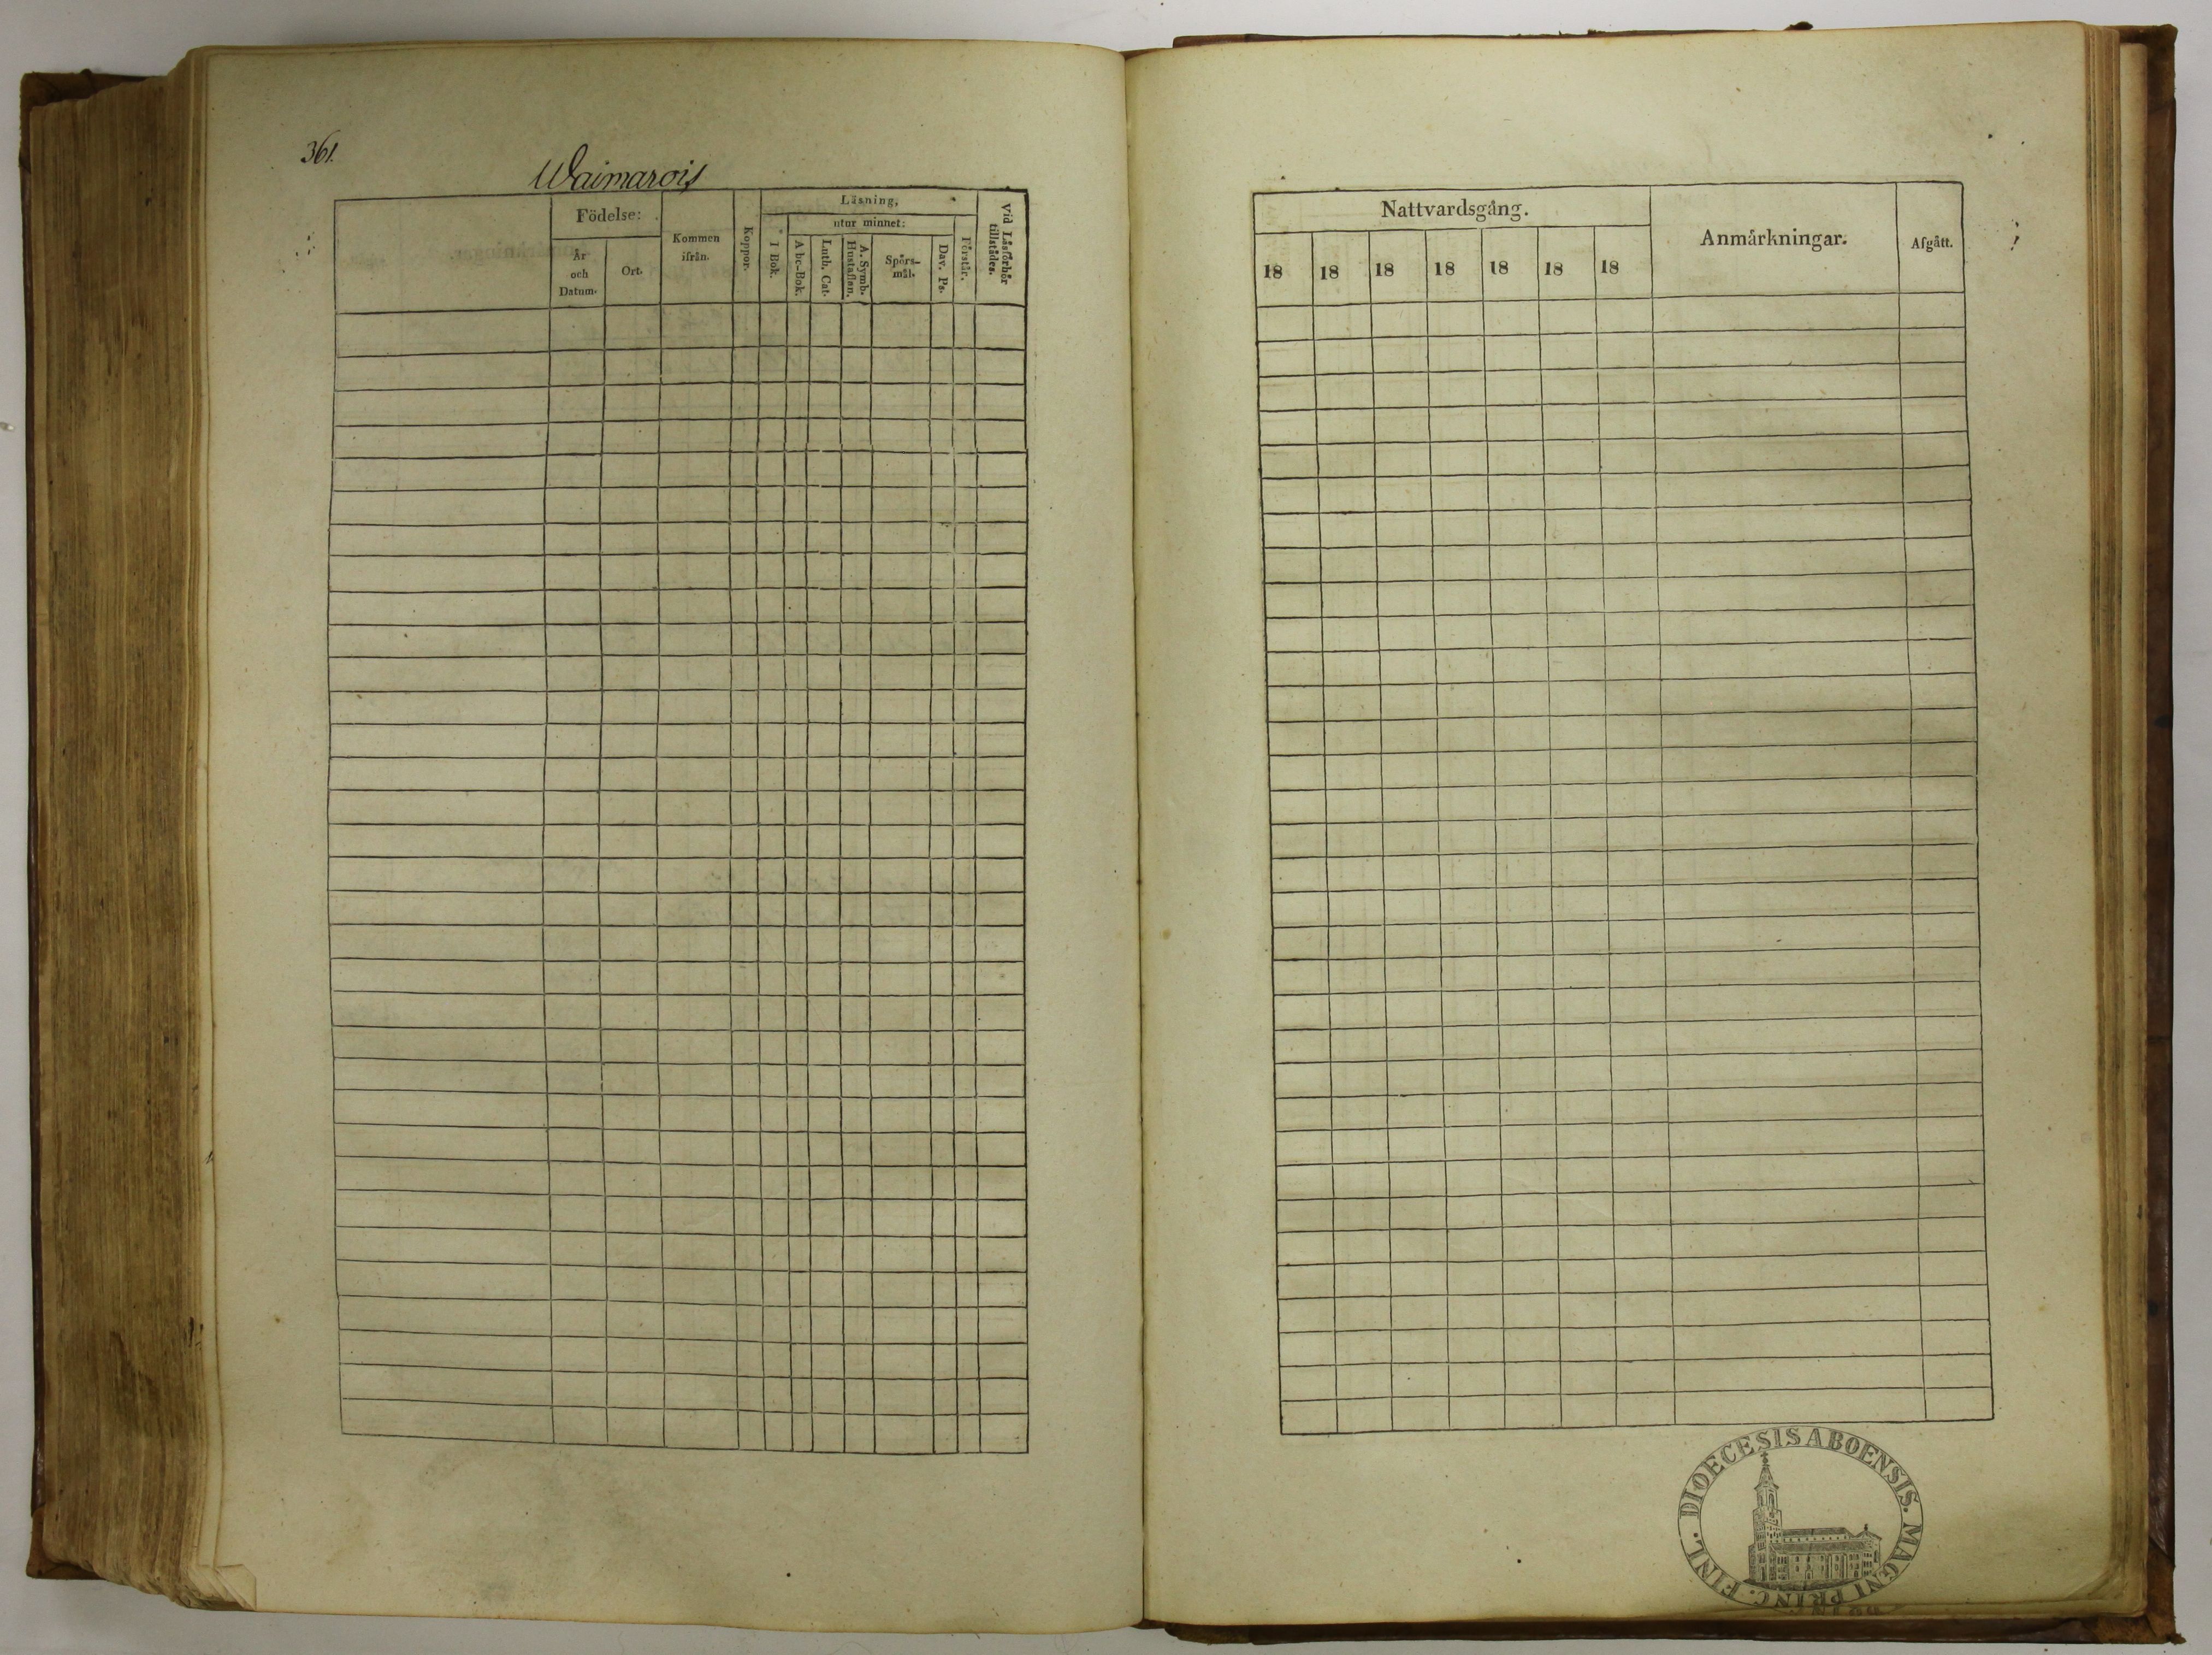 361.
Waimarois
Födelse:
År
och
Datum.
Ort.
Kommen
ifrån.
Koppor.
Läsning,
utur minnet:
I Bok.
Abc-Bok.
Luth. Cat.
A. Symb.
Hustaflan.
Spörs-
mål.
Dav. Ps.
Förstår.
Vid Läsförhör
tillstädes.
Nattvardsgång.
18 18 18 18 18 18 18
Anmärkningar.
Afgått.
DIOECESIS ABOENSIS. MAGNI PRINC. FINL.